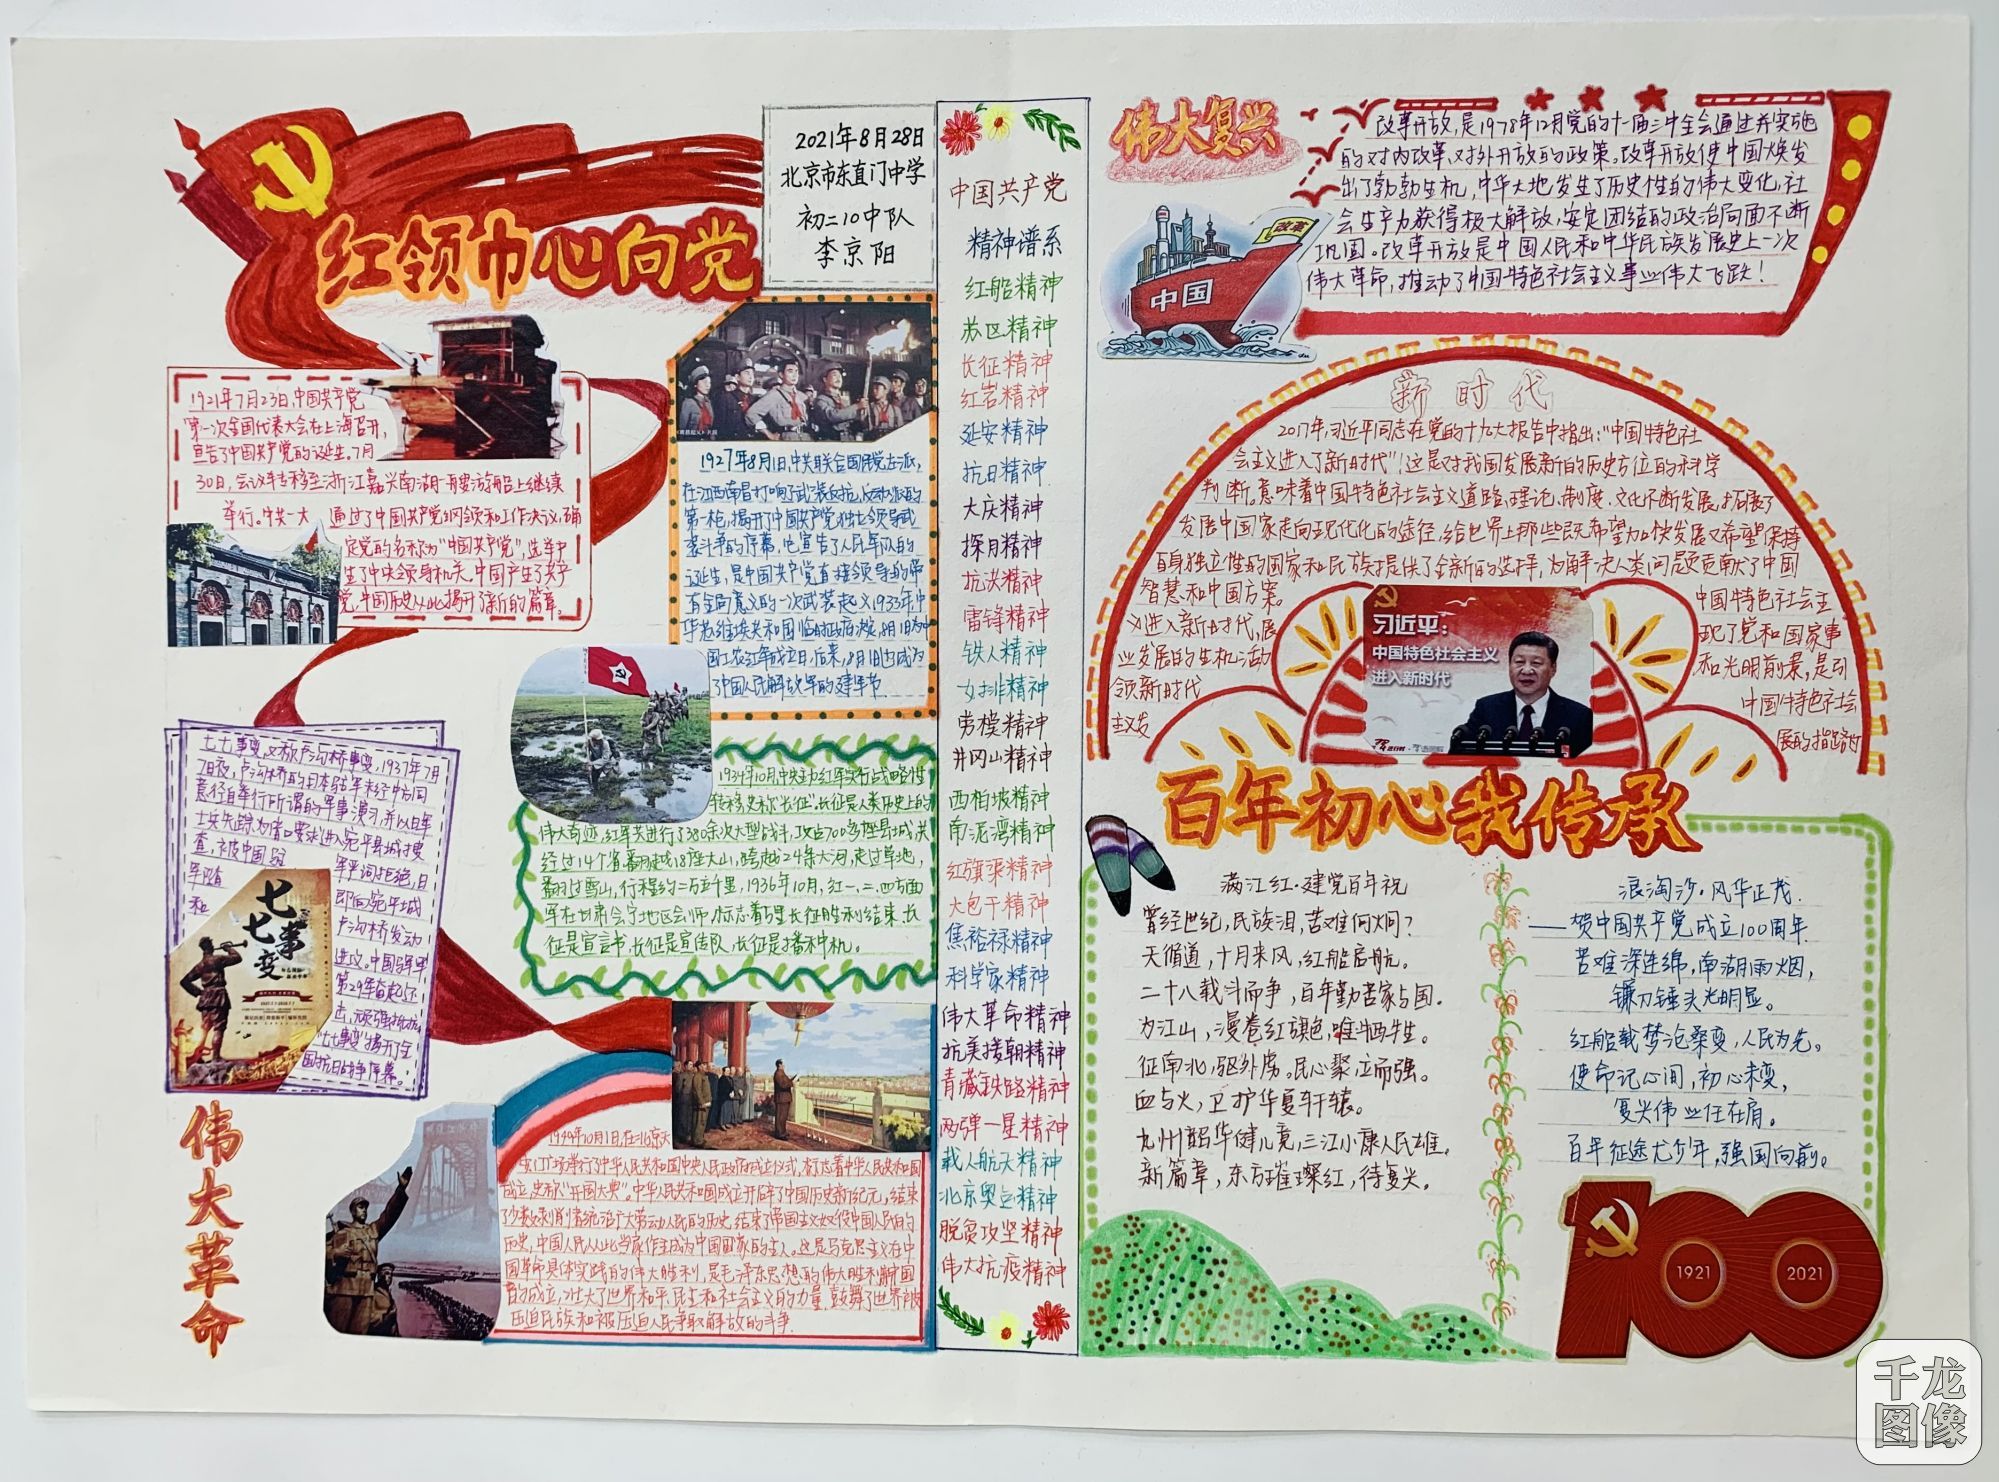 红领巾心向党
2021年8月28日
北京市东直门中学
初二10中队
李京阳
1921年7月23日,中国共产党
第一次全国代表大会在上海召开,
宣告了中国共产党的诞生,7月
30日,会议转移至浙江嘉兴南湖一再要活船上继续
举行。中共一大
通过了中国共产党纲领和工作决议,确
定党的名称为"中国共产党",选举产
生了中央领导机关。中国产生了共产
党,中国历史从此揭开了新的篇章。
1927年8月1日,中共联合国民党左派,
在江西南昌打响了武装反抗反动派的
第一枪,揭开了中国共产党独立领导武
装斗争的序幕,也宣告了人民军队的
诞生,是中国共产党直接领导的带
有全局意义的一次武装起义。1933年,中
华苏维埃共和国临时政府决定,8月1日为中
国工农红军成立日,后来,8月1日也成为
了中国人民解放军的建军节.
七七事变,又称卢沟桥事变,1937年7月
7日夜,卢沟桥的日本驻军未经中方同
意径自举行所谓的军事演习,并以日军
士兵失踪为借口要求进入宛平县城搜
查,被中国驻
军严词拒绝,日
军随
即向宛平城
和
卢沟桥发动
进攻。中国驻军
第29军奋起还
击,顽强抵抗。
"七七事变"揭开了全
国抗日战争序幕。
七七事变
1934年10月,中央主力红军实行战略性
转移,史称"长征"。长征是人类历史上的
伟大奇迹,红军共进行了380余次大型战斗,攻占700多座县城,共
经过14个省,翻越18座大山,跨越24条大河,走过草地,
翻过雪山,行程约二万五千里,1936年10月,红一、二、四方面
军在甘肃会宁地区会师,标志着万里长征胜利结束.长
征是宣言书,长征是宣传队,长征是播种机。
1949年10月1日,在北京天
安门广场举行了中华人民共和国中央人民政府成立仪式,标志着中华人民共和国
成立,史称"开国大典"。中华人民共和国成立开辟了中国历史新纪元,结束
了少数剥削者统治广大劳动人民的历史,结束了帝国主义奴役中国人民的
历史,中国人民从此当家作主成为中国国家的主人。这是马克思主义在中
国革命具体实践的伟大胜利,是毛泽东思想的伟大胜利新中国
的成立,壮大了世界和平、民主和社会主义的力量,鼓舞了世界被
压迫民族和被压迫人民争取解放的斗争.
伟大革命
中国共产党
精神谱系
红船精神
苏区精神
长征精神
红岩精神
延安精神
抗日精神
大庆精神
探月精神
抗洪精神
雷锋精神
铁人精神
女排精神
劳模精神
井冈山精神
西柏坡精神
南泥湾精神
红旗渠精神
大包干精神
焦裕禄精神
科学家精神
伟大革命精神
抗美援朝精神
青藏铁路精神
两弹一星精神
载人航天精神
北京奥运精神
脱贫攻坚精神
伟大抗疫精神
伟大复兴
改革开放,是1978年12月党的十一届三中全会通过并实施
的对内改革、对外开放的政策。改革开放使中国焕发
出了勃勃生机,中华大地发生了历史性的伟大变化,社
会生产力获得极大解放,安定团结的政治局面不断
巩固。改革开放是中国人民和中华民族发展史上一次
伟大革命,推动了中国特色社会主义事业伟大飞跃!
改革
中国
新时代
2017年,习近平同志在党的十九大报告中指出:"中国特色社
会主义进入了新时代"!这是对我国发展新的历史方位的科学
判断。意味着中国特色社会主义道路、理论、制度、文化不断发展,拓展了
发展中国家走向现代化的途径,给世界上那些既希望加快发展又希望保持
自身独立性的国家和民族提供了全新的选择,为解决人类问题贡献了中国
智慧和中国方案。
中国特色社会主
义进入新时代,展
现了党和国家事
业发展的生机活动
和光明前景,是引
领新时代
中国特色社会
主义发
展的指路
习近平:
中国特色社会主义
进入新时代
百年初心我传承
满江红·建党百年祝
曾经世纪,民族泪,苦难何炯?
天循道,十月来风,红船启航。
二十八载斗而争,百年勤苦家与国.
为江山,漫卷红旗色,唯牺牲。
征南北,驱外虏。民心聚,立而强。
血与火,卫护华夏轩辕。
九州韶华健儿竟,三江小康人民雄,
新篇章,东方璀璨红,待复兴。
浪淘沙·风华正茂
——贺中国共产党成立100周年
苦难深连绵,南湖雨烟,
镰刀锤头光明显。
红船载梦沧桑变,人民为先。
使命记心间,初心未变,
复兴伟业任在肩。
百年征途尤少年,强国向前。
100
1921
2021
千龙
图像